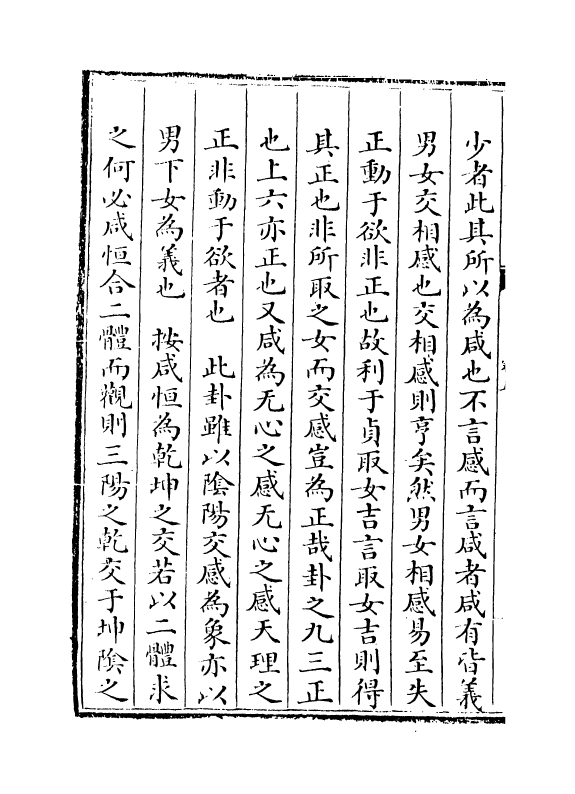 少者此其所以為咸也不言感而言咸者咸有皆義
男女交相感也交相感則亨矣然男女相感易至失
正動于欲非正也故利于貞取女吉言取女吉則得
其正也非所取之女而交感豈為正哉卦之九三正
也上六亦正也又咸為无心之感无心之感天理之
正非動于欲者也　此卦雖以陰陽交感為象亦以
男下女為義也　按咸恒為乾坤之交若以二體求
之何必咸恒合二體而觀則三陽之乾交于坤陰之